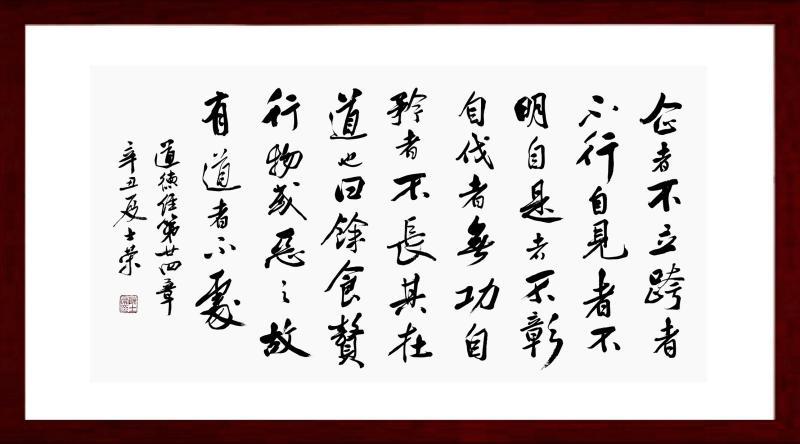 企者不立跨者
不行自見者不
明自是者不彰
自伐者無功自
矜者不長其在
道也曰餘食贅
行物或惡之故
有道者不處
道德經第廿四章
辛丑夏士榮